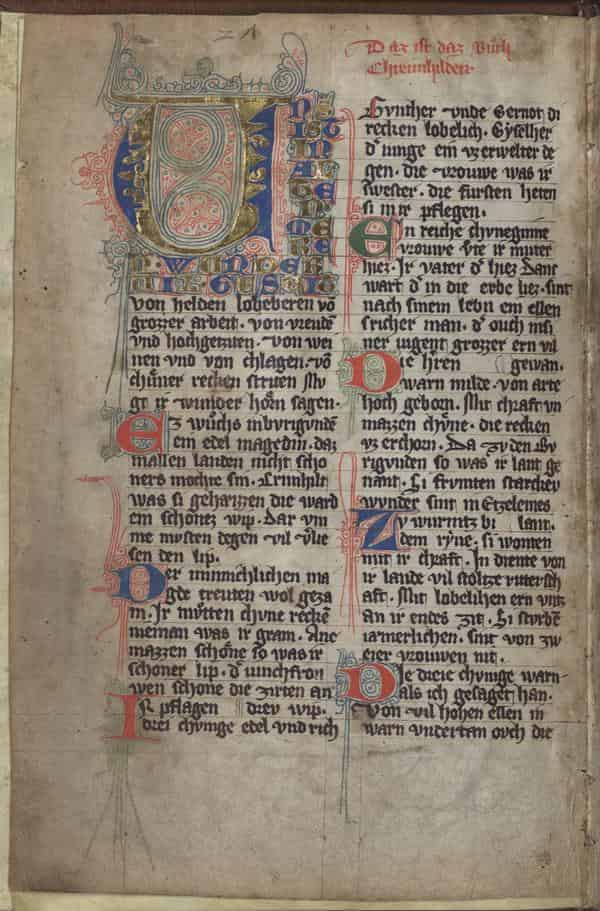 21
Daz ist daz Bůch
Chreimhilden
VNS
IST
IN
von helden lobeberen võ
grozzer arbeit. von vreude
vnd hochgeziten. von wei
nen vnd von chlagen. võ
chůner recken striten Mv
gt ir wunder hörn sagen.
Ez wůchs inburgunde
ein edel magedin. daz
in allen landen nicht scho
ners mochte sin. Crimhilt
was si geheizzen die ward
ein schönez wip. Dar vm
me mvsten degen vil v̓lie
sen den lip.
Der minnichlichen ma
gde trevten wol geza
m. Ir mvtten chvne recke͂
nieman was ir gram. Ane
mazzen schöne so was ir
schoner lip. d̓ iunchfron
wen schone die zirten an
Ir pflagen drev wip.
drei chvnige edel vnd rich
Gvnther vnde Gernot di
recken lobelich. Gyselher
d̓ iunge ein vzerwelter de
gen. die vrouwe was ir
swester. die fursten heten
si in ir pflegen.
Ein reiche chvneginne
vrouwe vte ir mvter
hiez. Ir vater d̓ hiez Danc
wart d̓ in die erbe liez. sint
nach sinem lebn ein ellen
tricher man. d̓ ouch in si
ner iugent grozzer ern vil
Die hren gewan.
warn milde. von arte
hoch geborn. Mit chraft vn
mazzen chvne. die recken
vz erchorn. Da zv den Bv
rigvnden so was ir lant ge
nant. Si frvmten starchev
wvnder sint in Etzelemes
Zv wurmtz bi lant.
dem ryne. si wonten
mit ir chraft. In diente von
ir lande vil stoltze ritersch
aft. Mit lobelihen ern vntz
an ir endes zit. Si sturbē
iæmerlichen. sint von zw
eier vrouwen nit.
Die dreie chvnige warn
als ich gesaget han.
Von vil hohen ellen in
warn vndertan ovch die